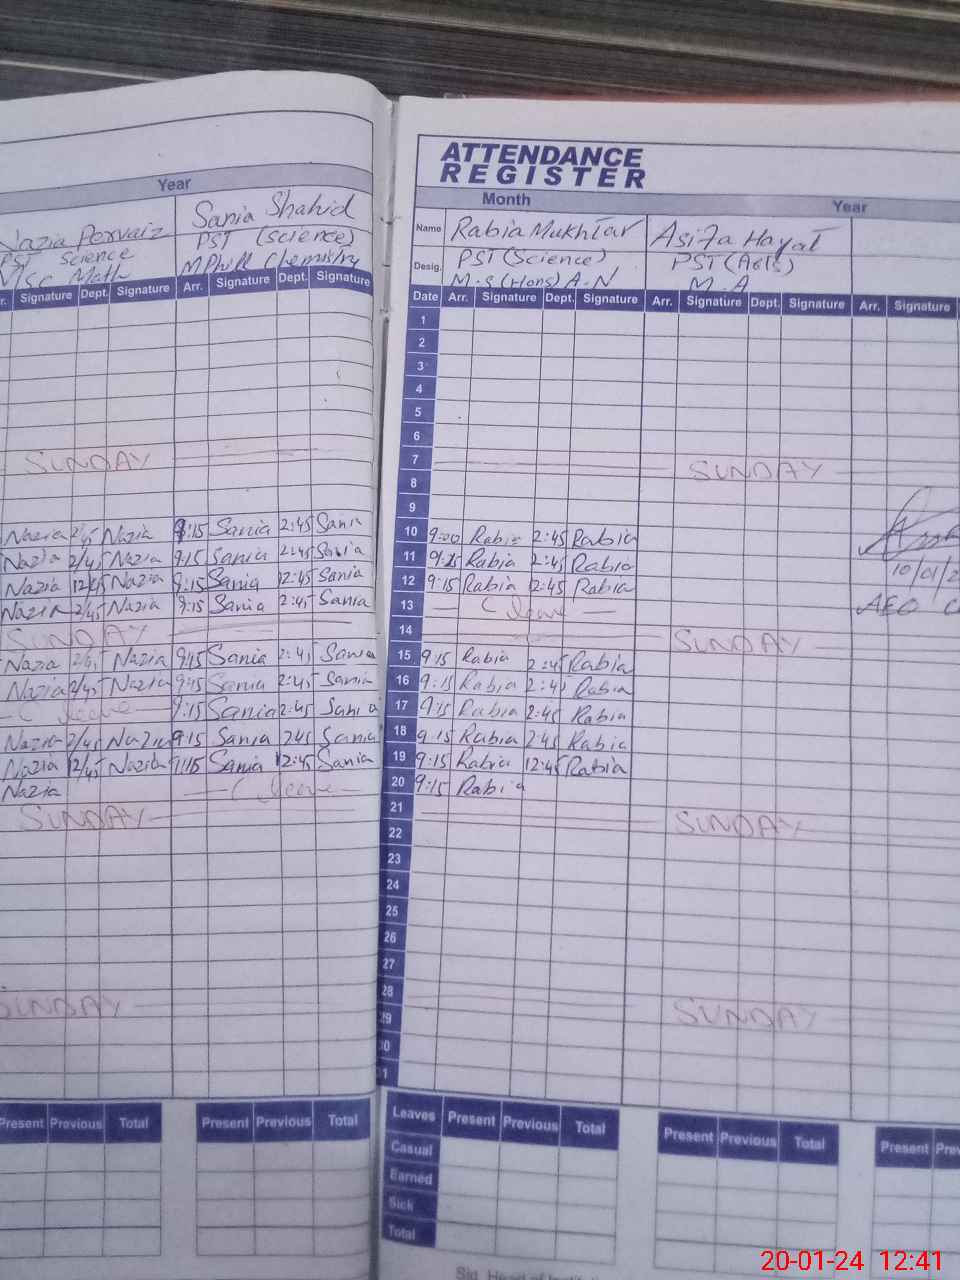 Year
Nazia Pervaiz
PST Science
MSc Math
Sania Shahid
PST (Science)
MPhill Chemistry
Signature Dept. Signature Arr. Signature Dept. Signature
SUNDAY
Nazia 2/45 Nazia 9:15 Sania 2:45 Sania
Nazia 2/45 Nazia 9:15 Sania 2:45 Sania
Nazia 12/45 Nazia 9:15 Sania 2:45 Sania
Nazia 2/45 Nazia 9:15 Sania 2:45 Sania
SUNDAY
Nazia Nazia 9:15 Sania 2:45 Sania
Nazia 2/45 Nazia 9:15 Sania 2:45 Sania
( leave 9:15 Sania 2:45 Sania
Nazia 2/45 Nazia 9:15 Sania 245 Sania
Nazia 12/45 Nazia Sania 12:45 Sania
Nazia ( leave
SUNDAY
SUNDAY
Present Previous Total Present Previous Total
ATTENDANCE
REGISTER
Month Year
Name Rabia Mukhtar Asifa Hayat
Desig. PST (Science) PST (Arts)
M.S (Hons) A.N M.A
Date Arr. Signature Dept. Signature Arr. Signature Dept. Signature Arr. Signature
1
2
3
4
5
6
7 SUNDAY
8
9
10 9:00 Rabia 2:45 Rabia
11 9:15 Rabia 2:45 Rabia
10/01/2
12 9:15 Rabia 12:45 Rabia
13 ( leave AEO
14 SUNDAY
15 9:15 Rabia 2:45 Rabia
16 9:15 Rabia 2:45 Rabia
17 9:15 Rabia 2:45 Rabia
18 9:15 Rabia 2:45 Rabia
19 9:15 Rabia 12:45 Rabia
20 9:15 Rabia
21
22 SUNDAY
23
24
25
26
27
28
29 SUNDAY
Leaves Present Previous Total Present Previous Total Present
Casual
Earned
Sick
Total
Sig. Head of
20-01-24 12:41